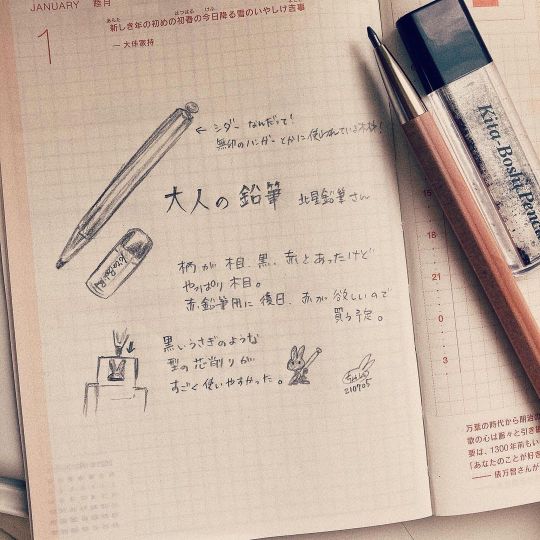 JANUARY 睦月
1
新しき年の初めの初春の今日降る雪のいやしけ吉事
— 大伴家持
← シダー なんだって!
無印のハンガーとかに使われている木材!
大人の鉛筆 北星鉛筆さん
柄が 木目、黒、赤とあったけど
やっぱり 木目。
赤鉛筆用に 後日、赤が 欲しいので
買う予定。
黒いうさぎのような
型の芯削りが
すごく使いやすかった。
210705
Kita-Boshi Pencil
15
18
21
0
3
万葉の時代から
歌の心は脈々と引き
要は、1300年前もい
「あなたのことが好き
—— 俵万智さんが